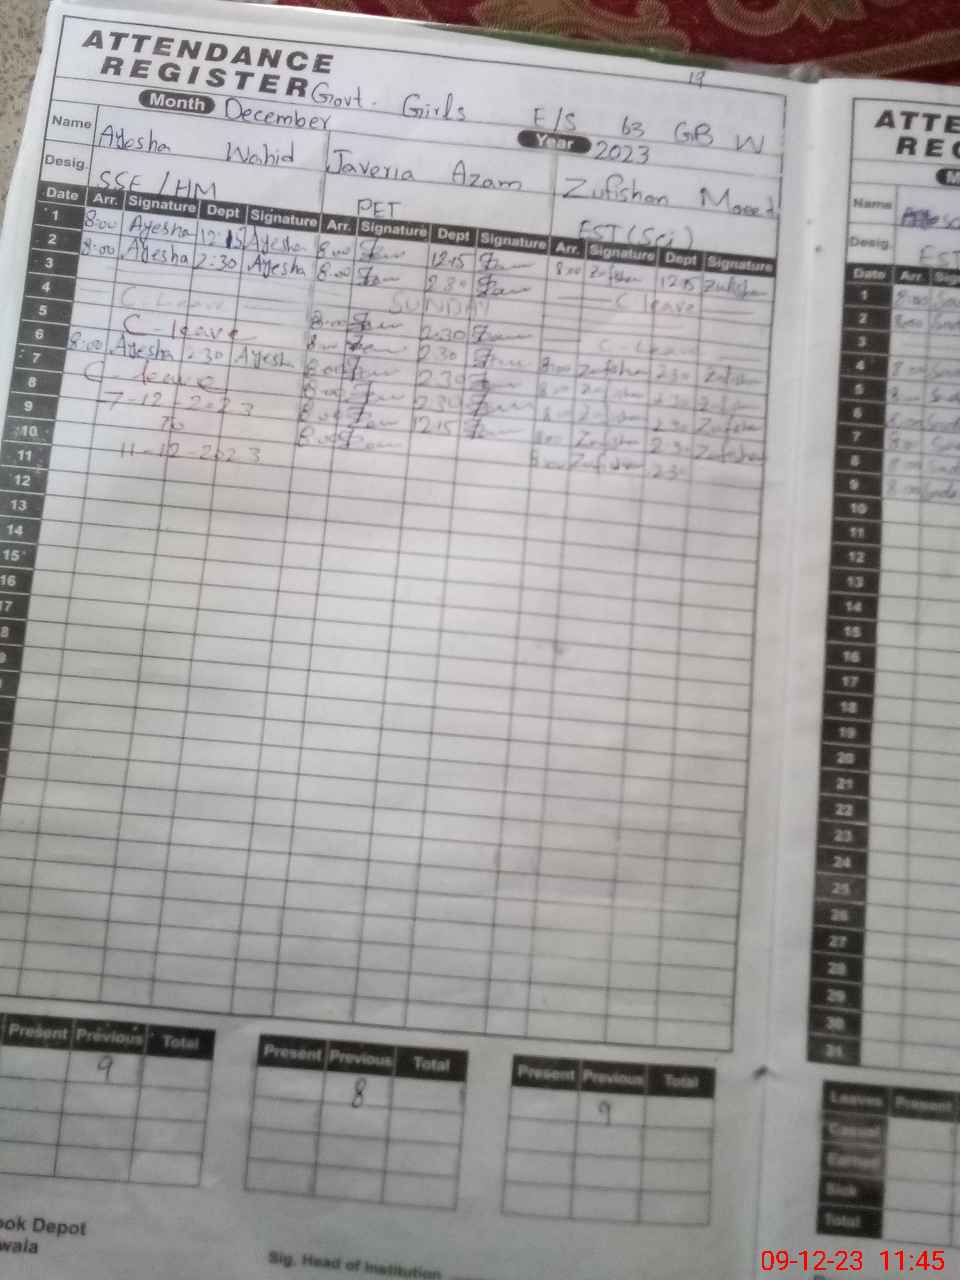 19
ATTENDANCE
REGISTER Govt. Girls E/S 63 GB W
Month December Year 2023
Name Ayesha Wahid Javeria Azam Zufishan
Desig. SSE/HM PET EST (Sci)
Date Arr. Signature Dept Signature Arr. Signature Dept Signature Arr. Signature Dept Signature
1 8:00 Ayesha 12:15 Ayesha 8:00 12:15 8:00 Zufishan 12:15 Zufishan
2 8:00 Ayesha 2:30 Ayesha 8:00 2:30 C leave
3 SUNDAY
4 C-Leave 8:00 2:30 C-Leave
5 C-leave 8:00 2:30 8:00 Zufishan 2:30 Zufishan
6 8:00 Ayesha 2:30 Ayesha 8:00 2:30 8:00 Zufishan 2:30 Zufishan
7 C leave 8:00 2:30 8:00 Zufishan 2:30 Zufishan
8 7-12-2023 8:00 12:15 8:00 Zufishan 2:30 Zufishan
9 To 8:00 8:00 Zufishan 2:30
10 11-12-2023
11
12
13
14
15
16
17
8
Present Previous Total
9
Present Previous Total
8
Present Previous Total
9
ook Depot
wala
Sig. Head of Institution
ATTE
REG
M
Name
Desig. EST
Date Arr. Sig
1 8:00
2 8:00
3
4 8:00
5 8:00
6 8:00
7 8:00
8 8:00
9 8:00
10
11
12
13
14
15
16
17
18
19
20
21
22
23
24
25
26
27
28
29
30
31
Leaves Present
Casual
Earned
Sick
Total
09-12-23 11:45